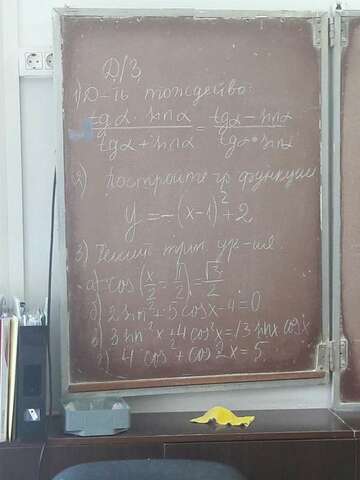 Д/З
1) Д-ть тождество:
tgα · sinα / tgα + sinα = tgα - sinα / tgα · sinα
2) Постройте гр. функции
y = -(x-1)² + 2
3) Решить триг. ур-ия.
а) cos(x/2 - π/2) = √3/2
б) 2 sin² + 5 cosx - 4 = 0
в) 3 sin²x + 4 cos²x = √3 sinx cosx
г) 4 cos² + cos 2x = 5